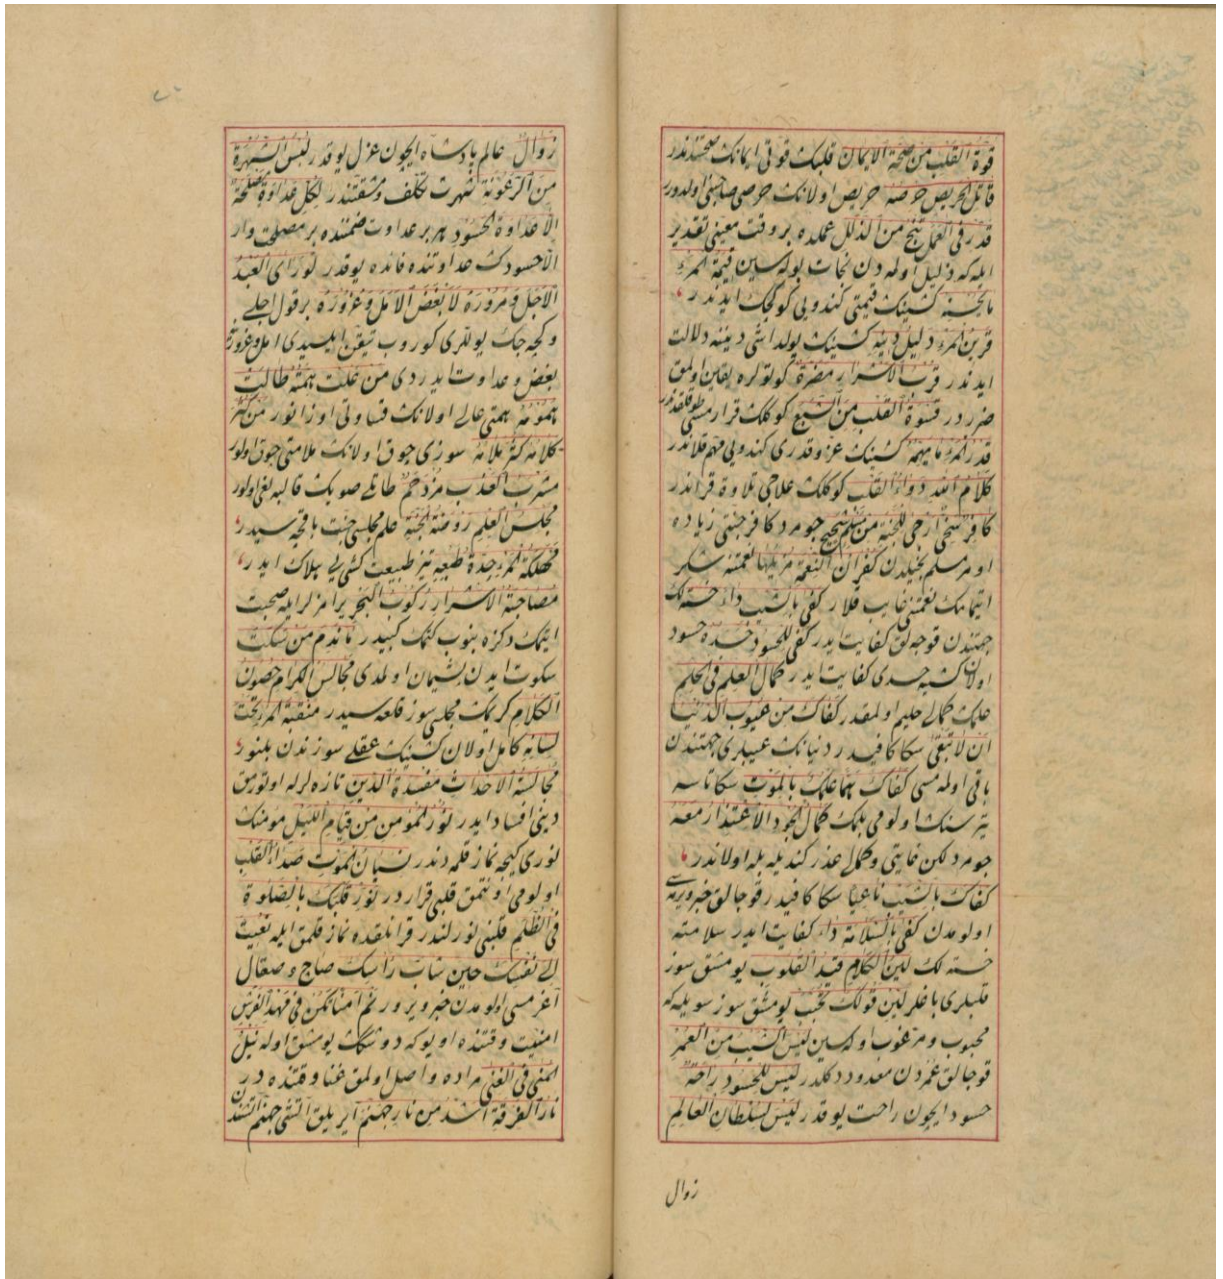 قوة القلب من صحة الایمان قلبك قوتی ایمانك صحتندندر
قاتل الحریص حرصه حریص اولانك حرصی صاحبنی اولدورر
قدر فی العمل تنج من الذلل عملده بر وقت معینی تقدیر
ایله که ذلیل اوله دن نجات بوله سین قیمة المرء
ما یحسنه کشینك قیمتی کندویی کوکچك ایدندر
قرین المرء دلیل دینه کشینك یولداشی دیننه دلالت
ایدندر قرب الاشرار مضرة کوتولره یقین اولمق
ضرردر قسوة القلب من الشبع کوکلك قرارمسی طوقلقدندر
قدر المرء ما یهمه کشینك عز و قدری کندویی فهم قلاندر
کلام الله دواء القلب کوکلك علاجی تلاوة قراندر
کافر سخی ارجی للجنة من مسلم شحیح جومرد کافر جنتی زیاده
اومر مسلم بخیلدن کفران النعمة مزیلها نعمتنه شکر
ایتمامك نعمتنی غایب قلار کفی بالشیب داء خسته لك
جهتندن قوجه لق کفایت ایدر کفی للحسود حسده حسود
اولان کشیه حسدی کفایت ایدر کمال العلم فی الحلم
علمك کمالی حلیم اولمقدر کفاك من عیوب الدنیا
ان لا تبقی سکا کافیدر دنیانك عیبلری جهتندن
باقی اوله مسی کفاك هما علمك بالموت سکا تاسه
یتر سنك اولومی بلمك کمال الجود الاعتذار معه
جومردلکن غایتی و کمالی عذر کندیله بله اولاندر
کفاك بالشیب ناعیا سکا کافیدر قوجالق خبر ویرمسی
اولومدن کفی بالسلامة داء کفایت ایدر سلامته
خسته لك لین الکلام قید القلوب یومشق سوز
قلبلری باغلر لین قولك تحبب یومشق سوز سویله که
محبوب و مرغوب اوله سین لیس الشیب من العمر
قوجالق عمردن معدود دکلدر لیس للحسود راحة
حسود ایچون راحت یوقدر لیس لسلطان العالم
زوال
زوال عالم پادشاه ایچون عزل یوقدر لیس الشهرة
من الرعونة شهرت تکلف و مشقتندر لکل عداوة مصلحة
الا عداوة الحسود هر بر عداوت ضمننده بر مصلحت وار
الا حسودك عداوتنده فائده یوقدر لو رای العبد
الاجل و مروره لابغض الامل و غروره بر قول اجلی
و کچه جك یوللری کوروب تیقن ایلسیدی امل و غرورة
بغض و عداوت ایدردی من علت همته طالت
همومه همتی عالی اولانك قساوتی اوزانور من کثر
کلامه کثر ملامه سوزی چوق اولانك ملامتی چوق اولور
مشرب العذب مزدحم طاتلی صویك قالبه لغی اولور
مجلس العلم روضة الجنة علم مجلسی جنت باقچه سیدر
مهلکة المرء حدة طبعه تیز طبیعت کشی یی هلاك ایدر
مصاحبة الاشرار رکوب البحر یرامزلر ایله صحبت
ایتمك دکزه بنوب کتمك کبیدر ما ندم من سکت
سکوت ایدن پشیمان اولمدی مجالس الکرام حصون
الکلام کریمك مجلسی سوز قلعه سیدر منقبة المرء تحت
لسانه کامل اولان کشینك عقلی سوزندن بلنور
مجالسة الاحداث مفسدة الدین تازه لرله اوتورمق
دینی افساد ایدر نور المؤمن من قیام اللیل مومنك
نوری کیجه نماز قلمه دندر نسیان الموت صدأ القلب
اولومی اونتمق قلبی قراردر نور قلبك بالصلوة
فی الظلم قلبنی نورلندر قرانلقده نماز قلمق ایله نعیت
الی نفسك حین شاب رأسك صاج و صقال
آغرمسی اولومدن خبر ویرور نم آمنا تکن فی مهد الفرش
امنیت وقتنده اویو که دوشك یومشق اوله نیل
المنی فی الغنی مراده واصل اولمق غنا وقتنده در
نار الفرقة اشد من نار جهنم آیریلق آتشی جهنم آتشندن